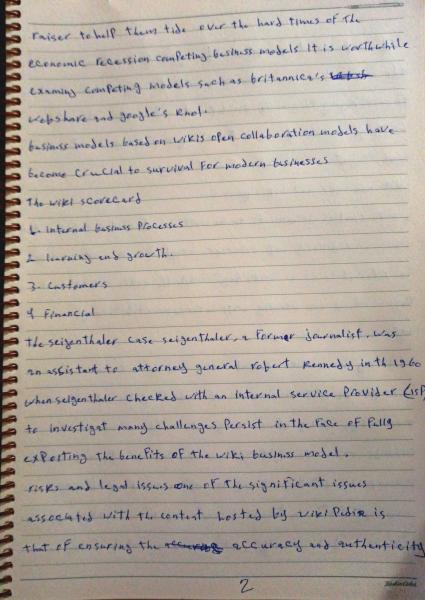 raiser to help them tide over the hard times of the
economic recession competing business models It is worthwhile
examing competing models such as britannica's
webshare and google's knol.
business models based on wikis open collaboration models have
become crucial to survival for modern businesses
The wiki scorecard
1. Internal business Processes
2 learning and growth.
3. Customers
4 Financial
the seigenthaler case seigenthaler, a former journalist, was
an assistant to attorney general robert Kennedy in th 1960
when seigenthaler checked with an internal service Provider (ISP
to investigat many challenges Persist in the face of fully
exploiting the benefits of the wiki business model.
risks and legal issues one of the significant issues
associated with the content hosted by wikiPedia is
that of ensuring the accuracy and authenticity
2